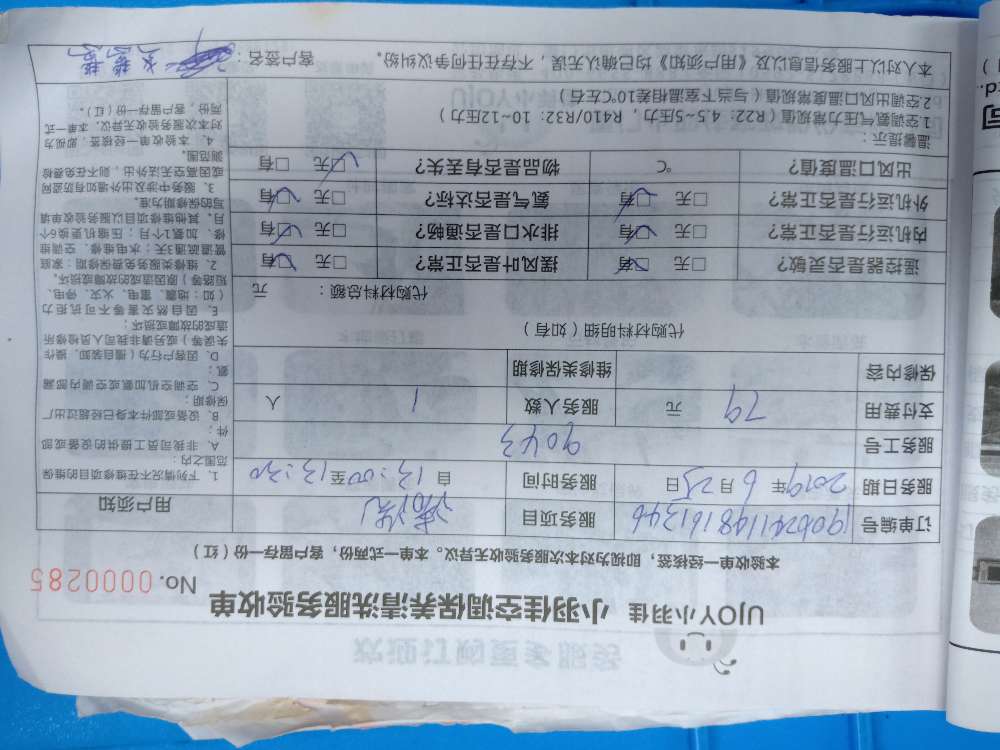 UJOY小羽佳 小羽佳空调保养清洗服务验收单
No. 0000285
本验收单一经核签，即视为对本次服务验收无异议。本单一式两份，客户留存一份（红）
订单编号 服务项目 清洗
服务日期 2019年 6月 25日 服务时间 自 13:00至13:30
服务工号 9043
支付费用 79 元 服务人数 1 人
保修内容 维修类保修期
代购材料明细（如有）
代购材料总额： 元
遥控器是否灵敏？ □有 □无 摆风叶是否正常？ □有 □无
内机运行是否正常？ □有 □无 排水口是否通畅？ □有 □无
外机运行是否正常？ □有 □无 氨气是否达标？ □有 □无
出风口温度值？ ℃ 物品是否有丢失？ □有 □无
温馨提示：
1空调氨气压力常规值（R22：4.5~5压力，R410/R32：10~12压力）
2空调出风口温度常规值（与当下室温相差10℃左右）
本人对以上服务信息以及《用户须知》均已确认无误，不存在任何争议纠纷。 客户签名：
用户须知
1、下列情况不在维修项目的维保
范围之内：
A、非我司员工提供的设备或部
件；
B、设备或部件本身已经超过出厂
保修期；
C、空调空机加氨或空调内部漏
氨；
D、因客户行为（擅自装卸、操作
失误等）或另请非我司人员检修所
造成的故障或损坏；
E、因自然灾害等不可抗拒力
（如：地震、雷电、火灾、停电、
短路等）原因造成的故障或损坏。
2、维修类服务免费保修期：家庭
管道疏通3天；水电维修、空调维
修、加氨1个月；压缩机更换6个
月，其他维修项目以服务验收单填
写的保修期为准。
3、服务中涉及出外墙如有防盗网
或因高空无法外出，则不在免费检
测范围。
4、本验收单一经核签，即视为
对本次服务验收无异议，本单一式
两份，客户留存一份（红）。